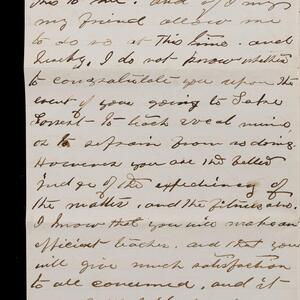 this to me. and if I may
my friend allow me
to do so at this time. and
lastly, I do not know whether
to congratulate you upon the
event of your going to Lake
Forrest to teach vocal music,
or to refrain from so doing.
However you are the better
judge of the expediency of
the matter, and the fitness also.
I know that you will make an
efficient teacher, and that you
will give much satisfaction
to all concerned, and it